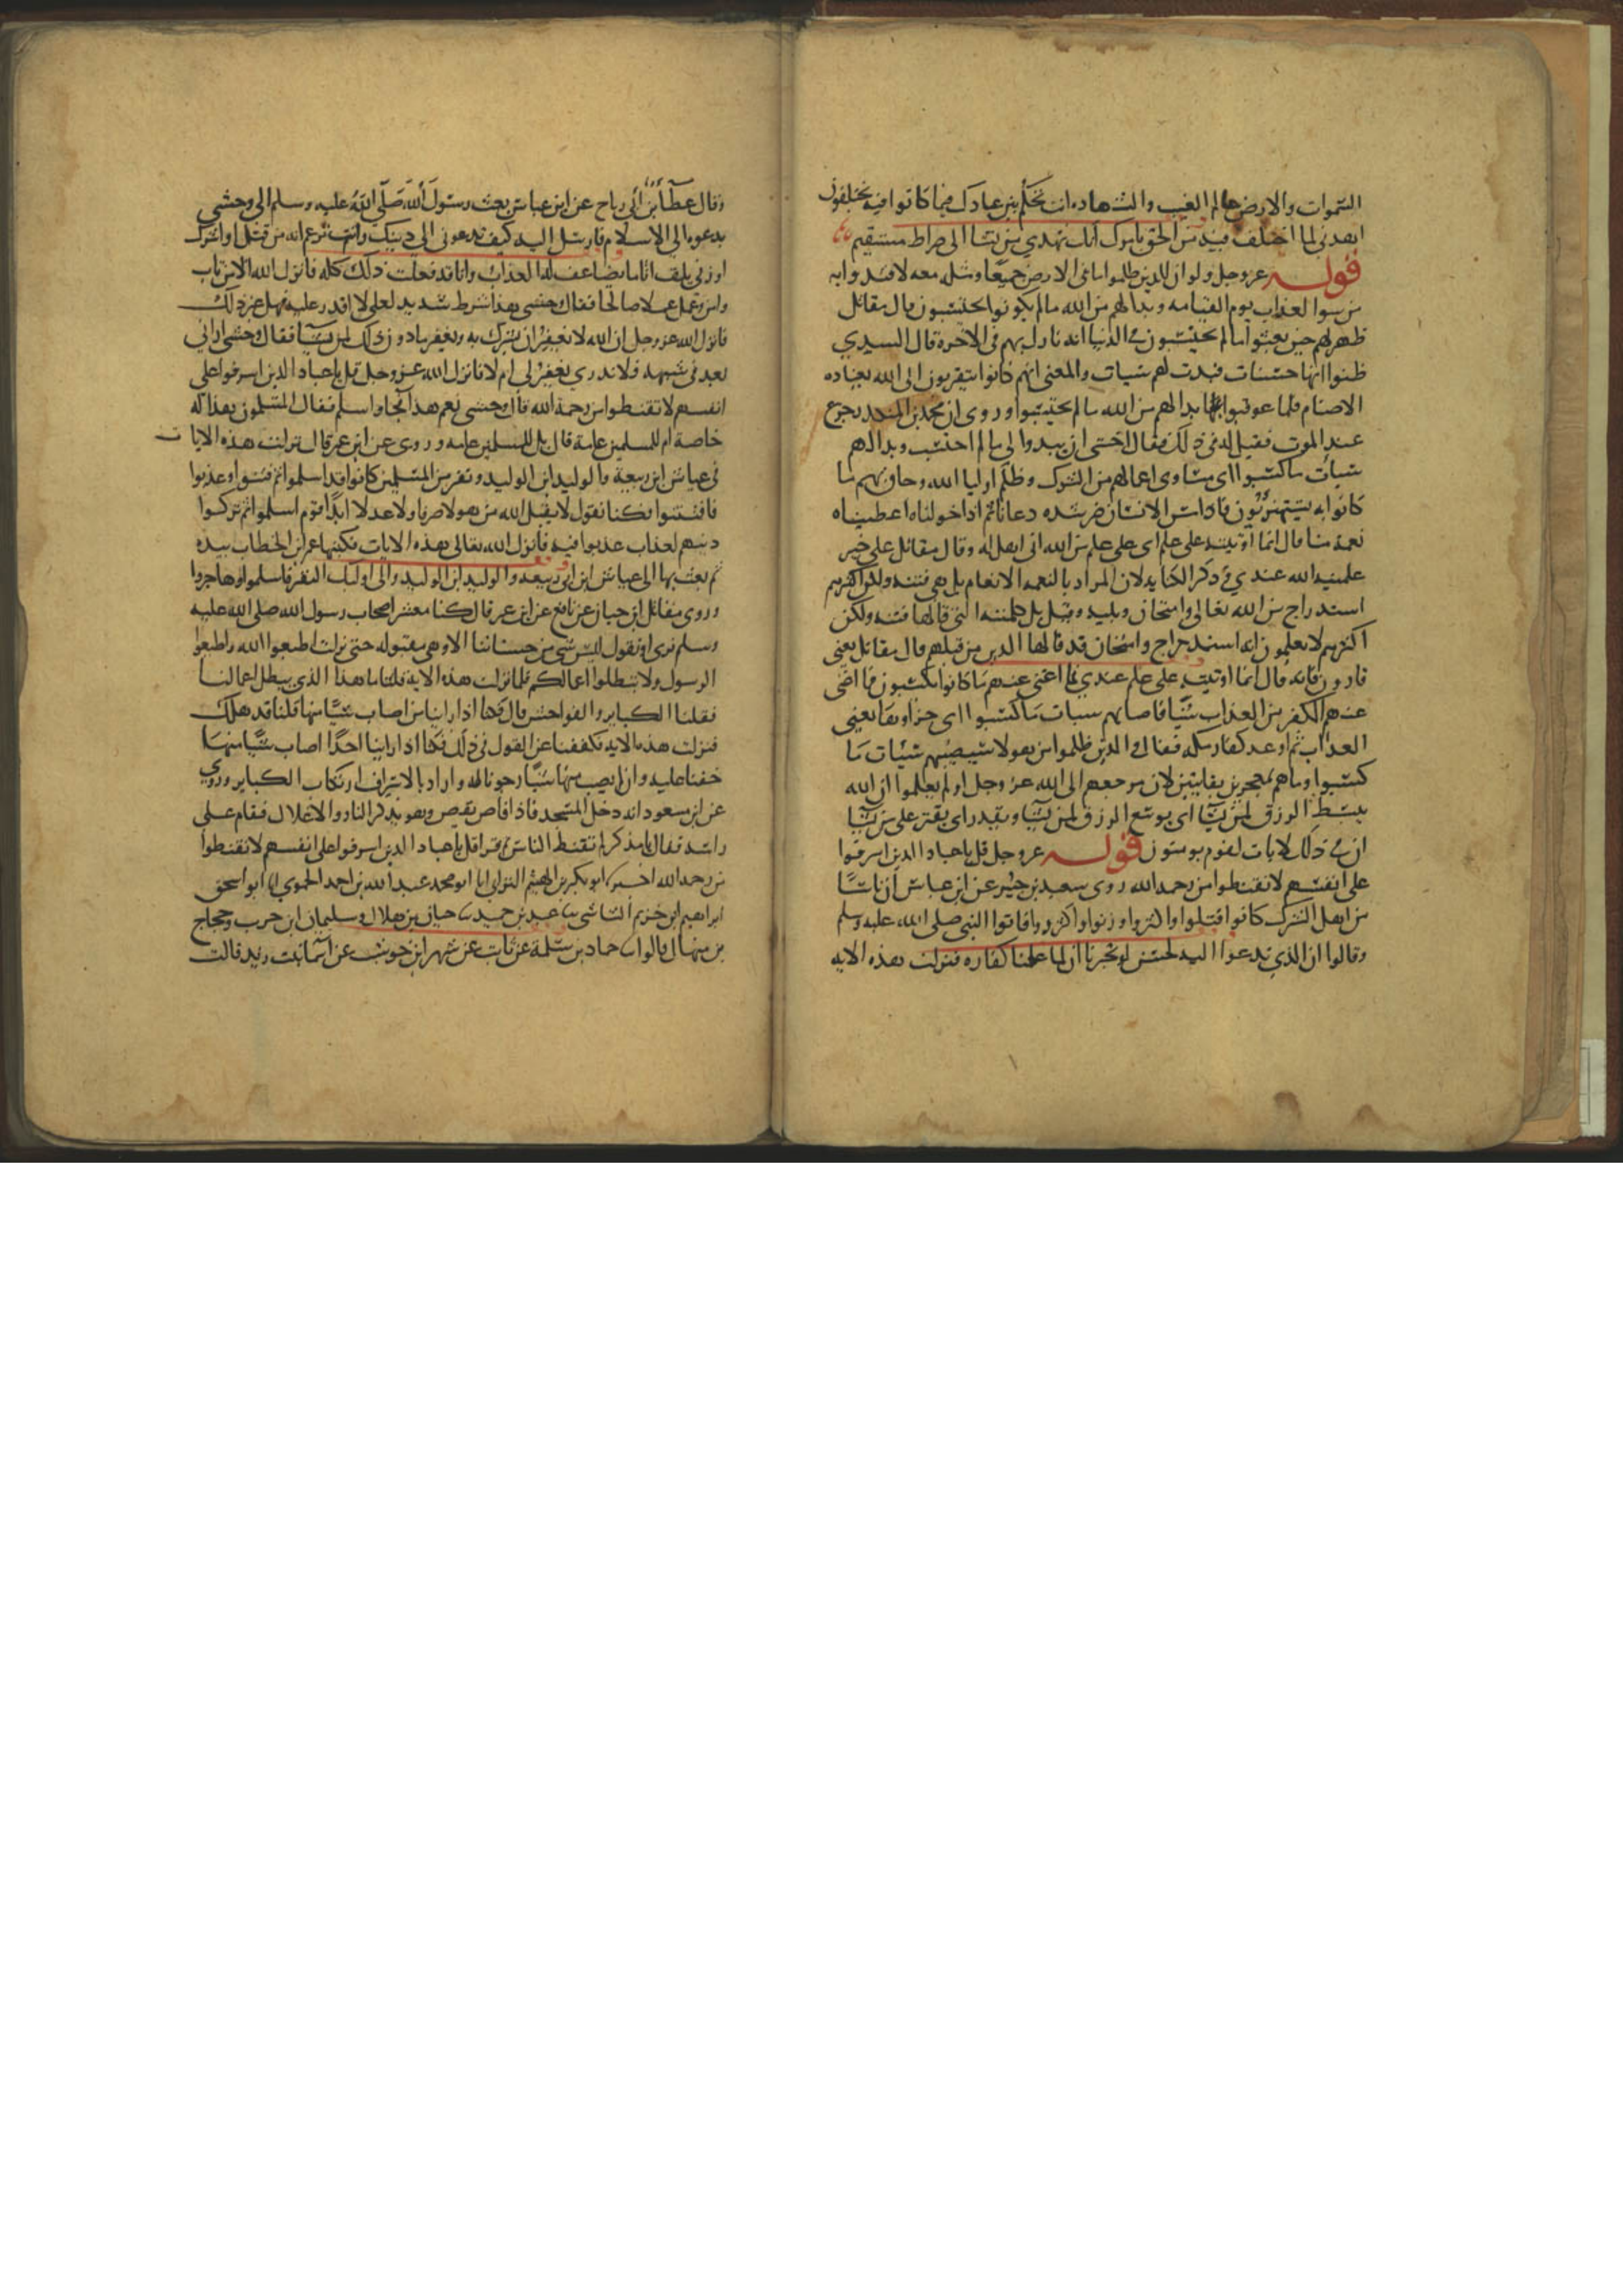 السموات والارض عالم الغيب والشهاده انت تحكم بين عبادك فيما كانوا فيه يختلفون
اهدني لما اختلف فيه من الحق بامرك انك تهدي من تشا الى صراط مستقيم
قوله عز وجل ولو ان للذين ظلموا ما في الارض جميعا ومثله معه لافتدوا به
من سوا العذاب يوم القيامه وبدا لهم من الله ما لم يكونوا يحتسبون قال مقاتل
ظهر لهم حين بعثوا ما لم يحتسبوا في الدنيا انه نازل بهم في الاخرة قال السدي
ظنوا انها حسنات فبدت لهم سيات والمعنى انهم كانوا يتقربون الى الله بعباده
الاصنام فلما عوقبوا بها بدا لهم من الله ما لم يحتسبوا وروى ان محمد بن المنكدر جزع
عند الموت فقيل له في ذلك فقال اخشى ان يبدوا لي ما لم احتسب وبدا لهم
سيات ما كسبوا اى مساوى اعمالهم من الشرك وظلم اوليا الله وحاق بهم ما
كانوا به يستهزئون فاذا مس الانسان ضر شده دعانا ثم اذا خولناه اعطيناه
نعمة منا قال انما اوتيته على علم اى على علم من الله انى اهل له وقال مقاتل على خير
علمه الله عندي وذكر الكنايه لان المراد بالنعمه الانعام بل هي فتنه ولكن اكثرهم
استدراج من الله تعالى وامتحان وبليه وقيل بل كلمته التي قالها فتنه ولكن
اكثرهم لا يعلمون انه استدراج وامتحان قد قالها الذين من قبلهم قال مقاتل يعنى
قارون فانه قال انما اوتيته على علم عندي فما اغنى عنهم ما كانوا يكسبون فما اغنى
عنهم الكفر من العذاب شيا فاصابهم سيات ما كسبوا اى جزاوها يعني
العذاب ثم اوعد كفار مكه فقال والذين ظلموا من هولا سيصيبهم سيات ما
كسبوا وما هم بمعجزين بفايتين لان مرجعهم الى الله عز وجل اولم يعلموا ان الله
يبسط الرزق لمن يشا اى يوسع الرزق لمن يشا ويقدر اى يقتر على من يشا
ان في ذلك لايات لقوم يومنون قوله عز وجل قل يا عبادى الذين اسرفوا
على انفسهم لا تقنطوا من رحمه الله روى سعيد بن جبير عن ابن عباس ان ناسا
من اهل الشرك كانوا قتلوا واكثروا وزنوا واكثروا فاتوا النبي صلى الله عليه وسلم
وقالوا ان الذي تدعوا اليه لحسن لو تخبرنا ان لما عملنا كفاره فنزلت هذه الايه
وقال عطا بن ابي رباح عن ابن عباس بعث رسول الله صلى الله عليه وسلم الى وحشي
يدعوه الى الاسلام فارسل اليه كيف تدعوني الى دينك وانت تزعم انه من قتل او اشرك
او زنى يلق اثاما يضاعف له العذاب وانا قد فعلت ذلك كله فانزل الله الا من تاب
وامن وعمل عملا صالحا فقال وحشى هذا شرط شديد لعلي لا اقدر عليه فهل غير ذلك
فانزل الله عز وجل ان الله لا يغفر ان يشرك به ويغفر ما دون ذلك لمن يشا فقال وحشى ارانى
بعد فى شبهه فلا ندري يغفر لى ام لا فانزل الله عز وجل قل يا عبادى الذين اسرفوا على
انفسهم لا تقنطوا من رحمة الله قال وحشى نعم هذا فجا واسلم فقال المسلمون هذا له
خاصة ام للمسلمين عامة قال بل للمسلمين عامه وروى عن ابن عمر قال نزلت هذه الايات
فى عياش ابن ربيعة والوليد ابن الوليد ونفر من المسلمين كانوا قد اسلموا ثم فتنوا وعذبوا
فافتتنوا فكنا نقول لا يقبل الله من هولا صرفا ولا عدلا ابدا قوم اسلموا ثم تركوا
دينهم لعذاب عذبوا فيه فانزل الله تعالى هذه الايات فكتبها عمر بن الخطاب بيده
ثم بعث بها الى عياش ابن ابي ربيعه والوليد ابن الوليد والى اوليك النفر فاسلموا وهاجروا
وروى مقاتل ابن حيان عن نافع عن ابن عمر قال كنا معشر اصحاب رسول الله صلى الله عليه
وسلم نرى او نقول ليس شي من حسناتنا الا وهي مقبوله حتى نزلت اطيعوا الله واطيعوا
الرسول ولا تبطلوا اعمالكم فلما نزلت هذه الايه قلنا ما هذا الذي يبطل اعمالنا
فقلنا الكباير والفواحش قال فكنا اذا راينا من اصاب شيا منها قلنا قد هلك
فنزلت هذه الايه فكففنا عن القول في ذلك فكنا اذا راينا احدا اصاب شيا منها
خفنا عليه وان لم يصب منها شيا رجونا له واراد بالاسراف ارتكاب الكباير وروي
عن ابن مسعود انه دخل المسجد فاذا قاص يقص وهو يذكر النار والاغلال فقام على
راسه فقال يا مذكر لم تقنط الناس ثم قرا قل يا عبادى الذين اسرفوا على انفسهم لا تقنطوا
من رحمه الله اخبرنا ابو بكر بن الهيثم الترابي انا ابو محمد عبد الله بن احمد الحموي انا ابو اسحق
ابراهيم ابن خزيم الشاشي ثنا عبد بن حميد ثنا حبان بن هلال وسليمان ابن حرب وحجاج
بن منهال قالوا ثنا حماد بن سلمة عن ثابت عن شهر ابن حوشب عن اسما بنت يزيد قالت